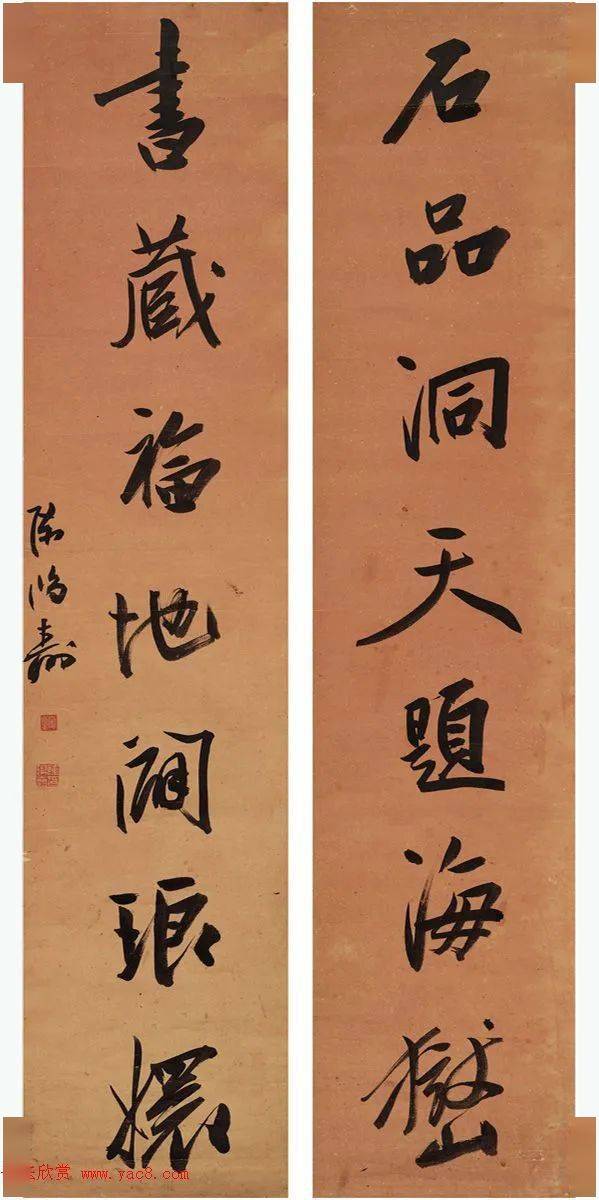 石品洞天題海嶽
書藏福地闢琅嬛
陳鴻壽
欣赏 www.yac8.com